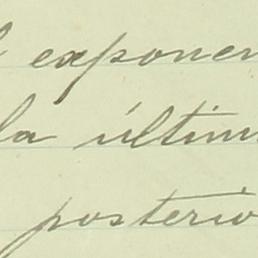 l exponer
la últim
posterio